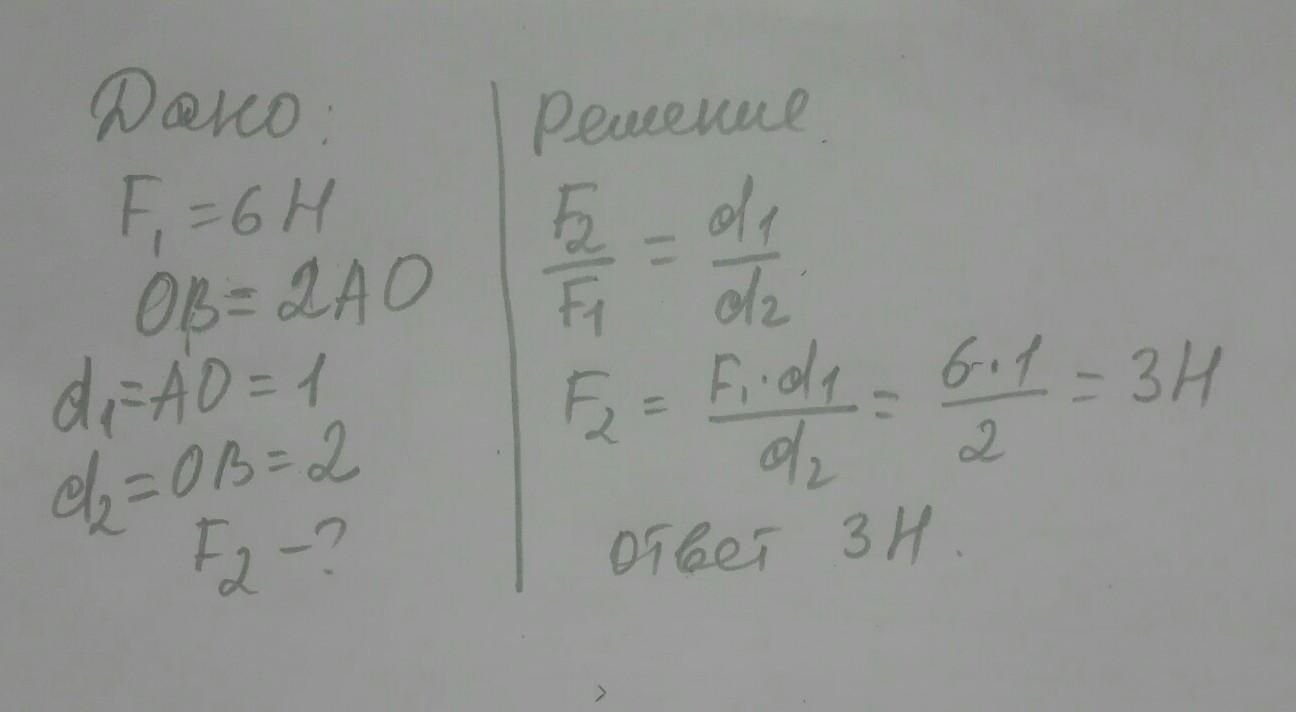 Дано:
F₁ = 6 Н
OB = 2AO
d₁ = AO = 1
d₂ = OB = 2
F₂ – ?
Решение.
F₂/F₁ = d₁/d₂
F₂ = F₁·d₁/d₂ = 6·1/2 = 3Н
ответ 3Н.